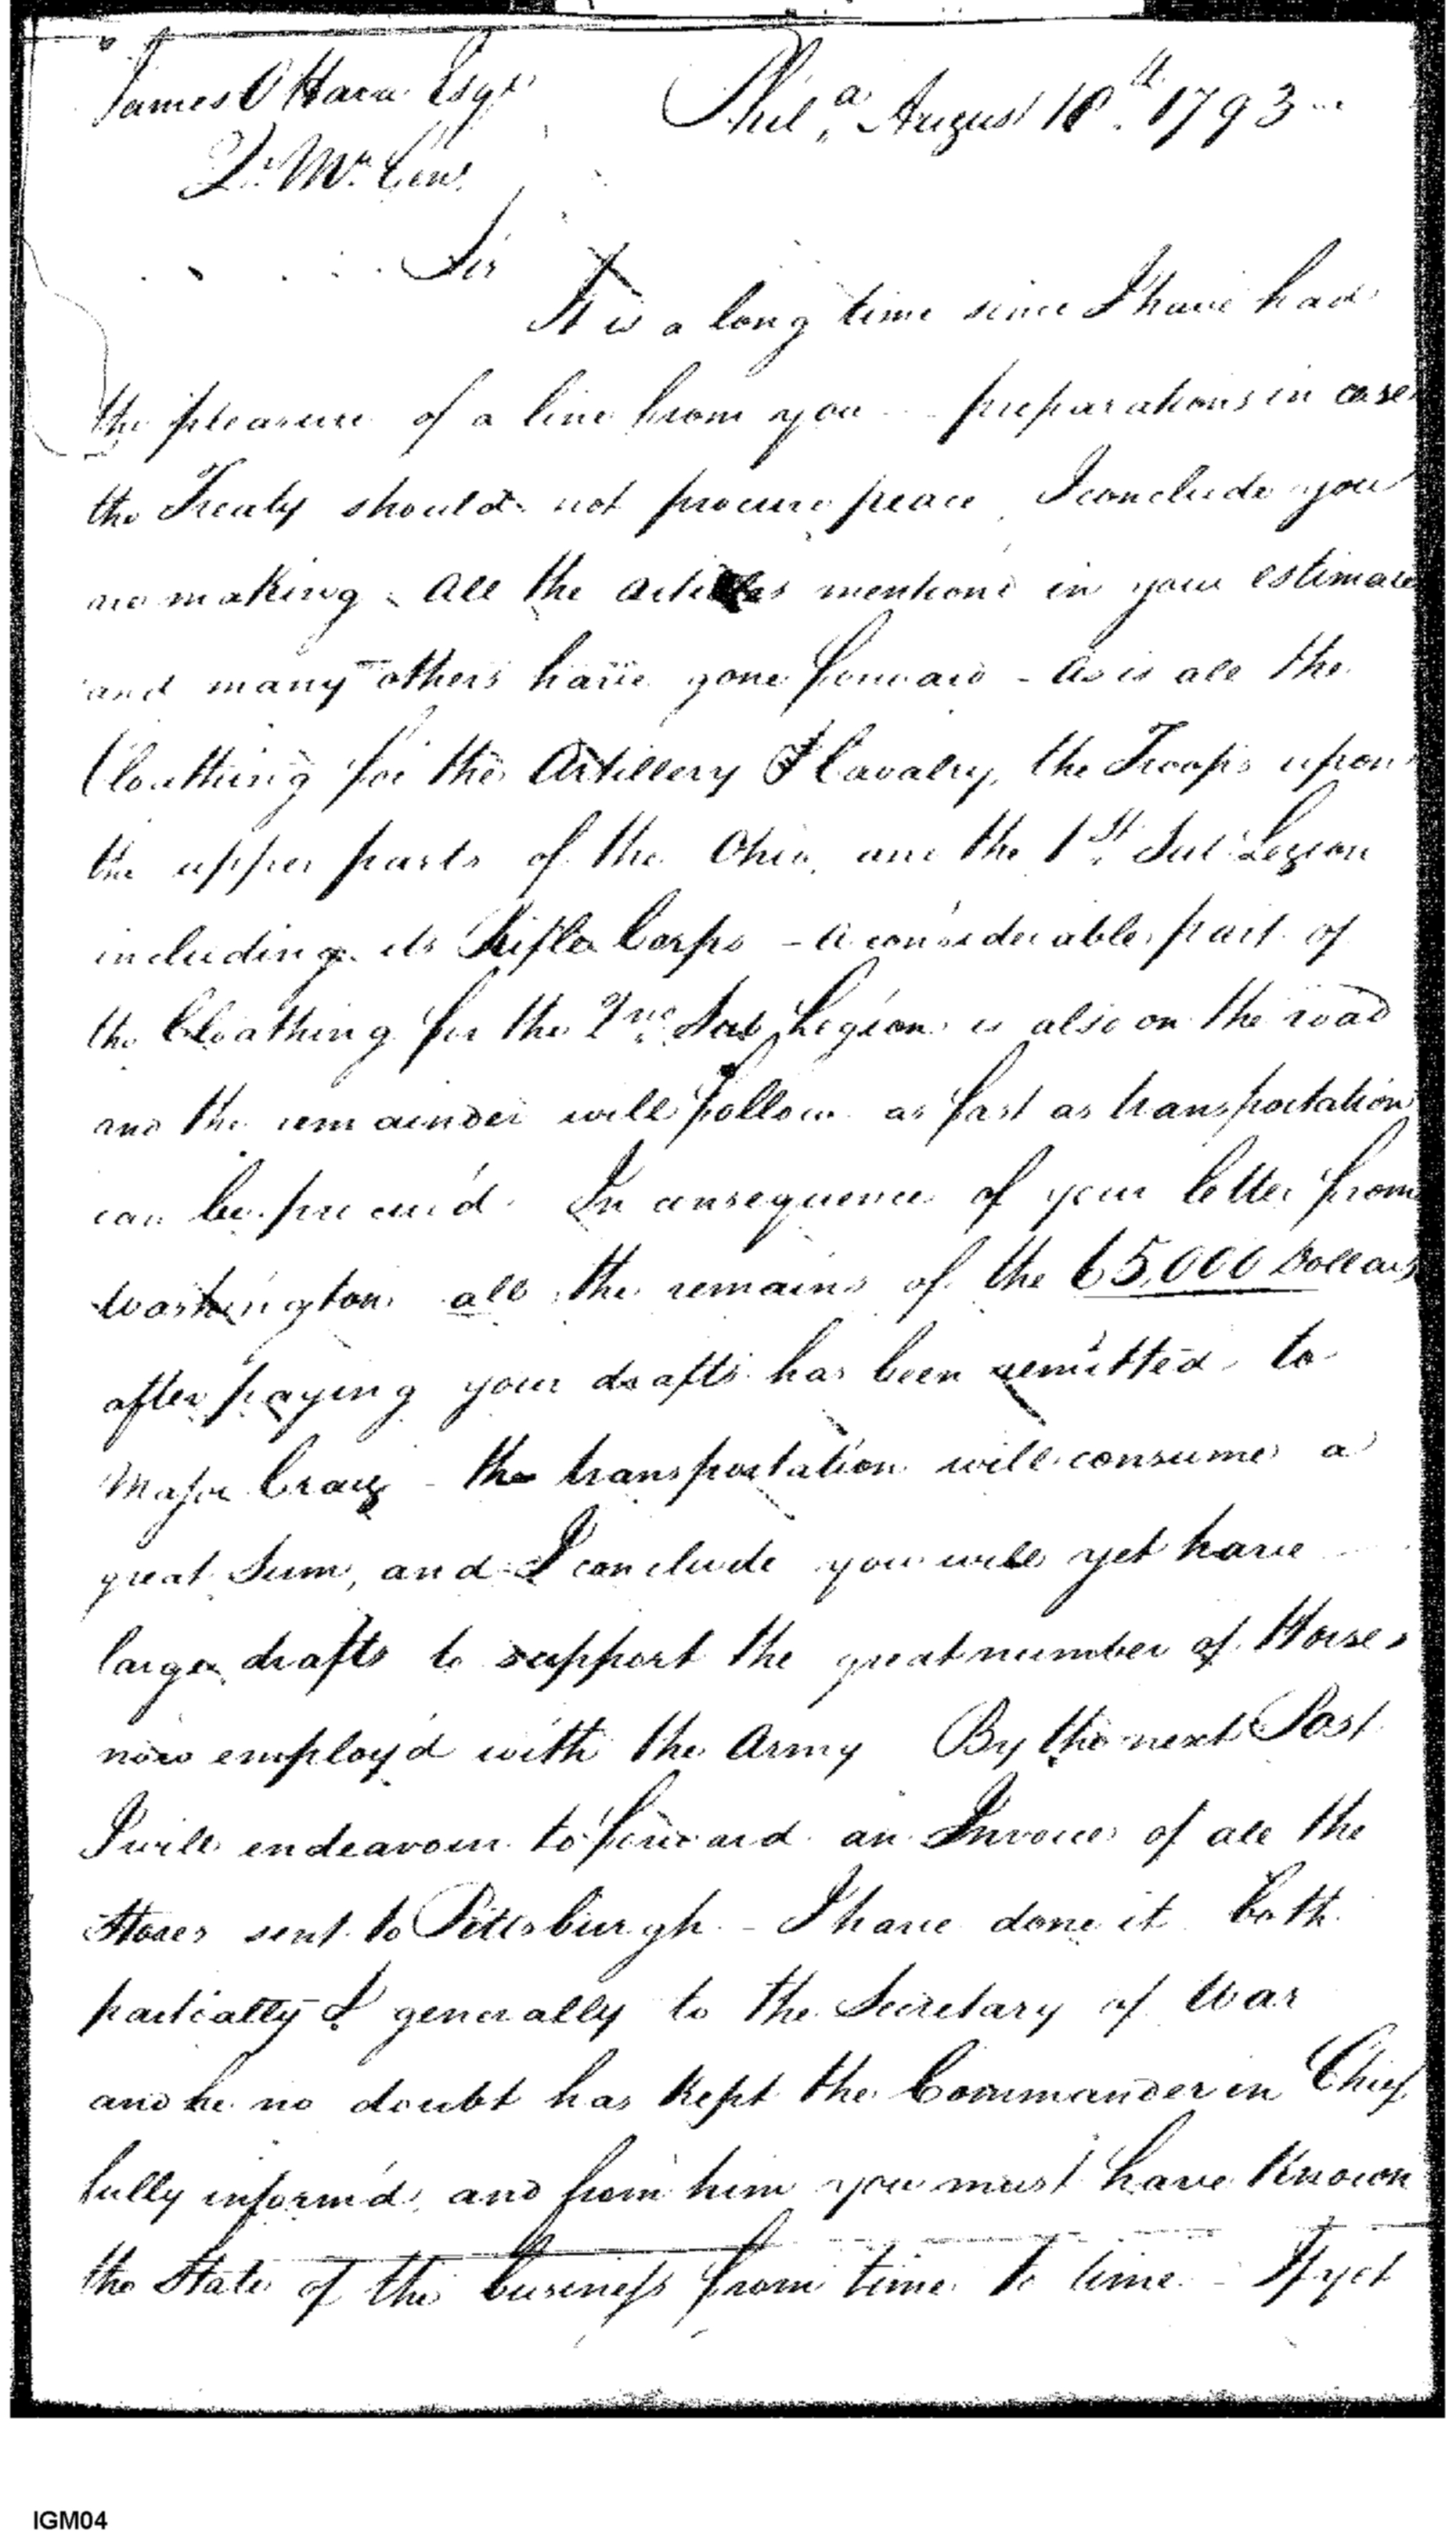 James O Hara Esqr
Phila. August 10th. 1793
Qr. Mr. Genl.
Sir
It is a long time since I have had
the pleasure of a line from you - preparations in case
the Treaty should not procure peace I conclude you
are making - all the articles mentiond in your estimate
and many others have gone forward - as is all the
Cloathing for the Artillery & Cavalry, the Troops upon
the upper parts of the Ohio, and the 1st. Sub Legion
including its Rifle Corps - a considerable part of
the Cloathing for the 2nd. Sub Legion is also on the road
and the remainder will follow as fast as transportation
can be procur'd. In consequence of your letter from
Washington all the remains of the 65,000 Dollars
after paying your drafts has been remitted to
Major Craig - the transportation will consume a
great Sum, and I conclude you will yet have
large drafts to support the great number of Horses
now employ'd with the Army By the next Post
I will endeavour to forward an Invoice of all the
Stores sent to Pittsburgh - I have done it both
partially & generally to the Secretary of War
and he no doubt has kept the Commander in Chief
fully inform'd, and from him you must have known
the State of the business from time to time - If yet
IGM04